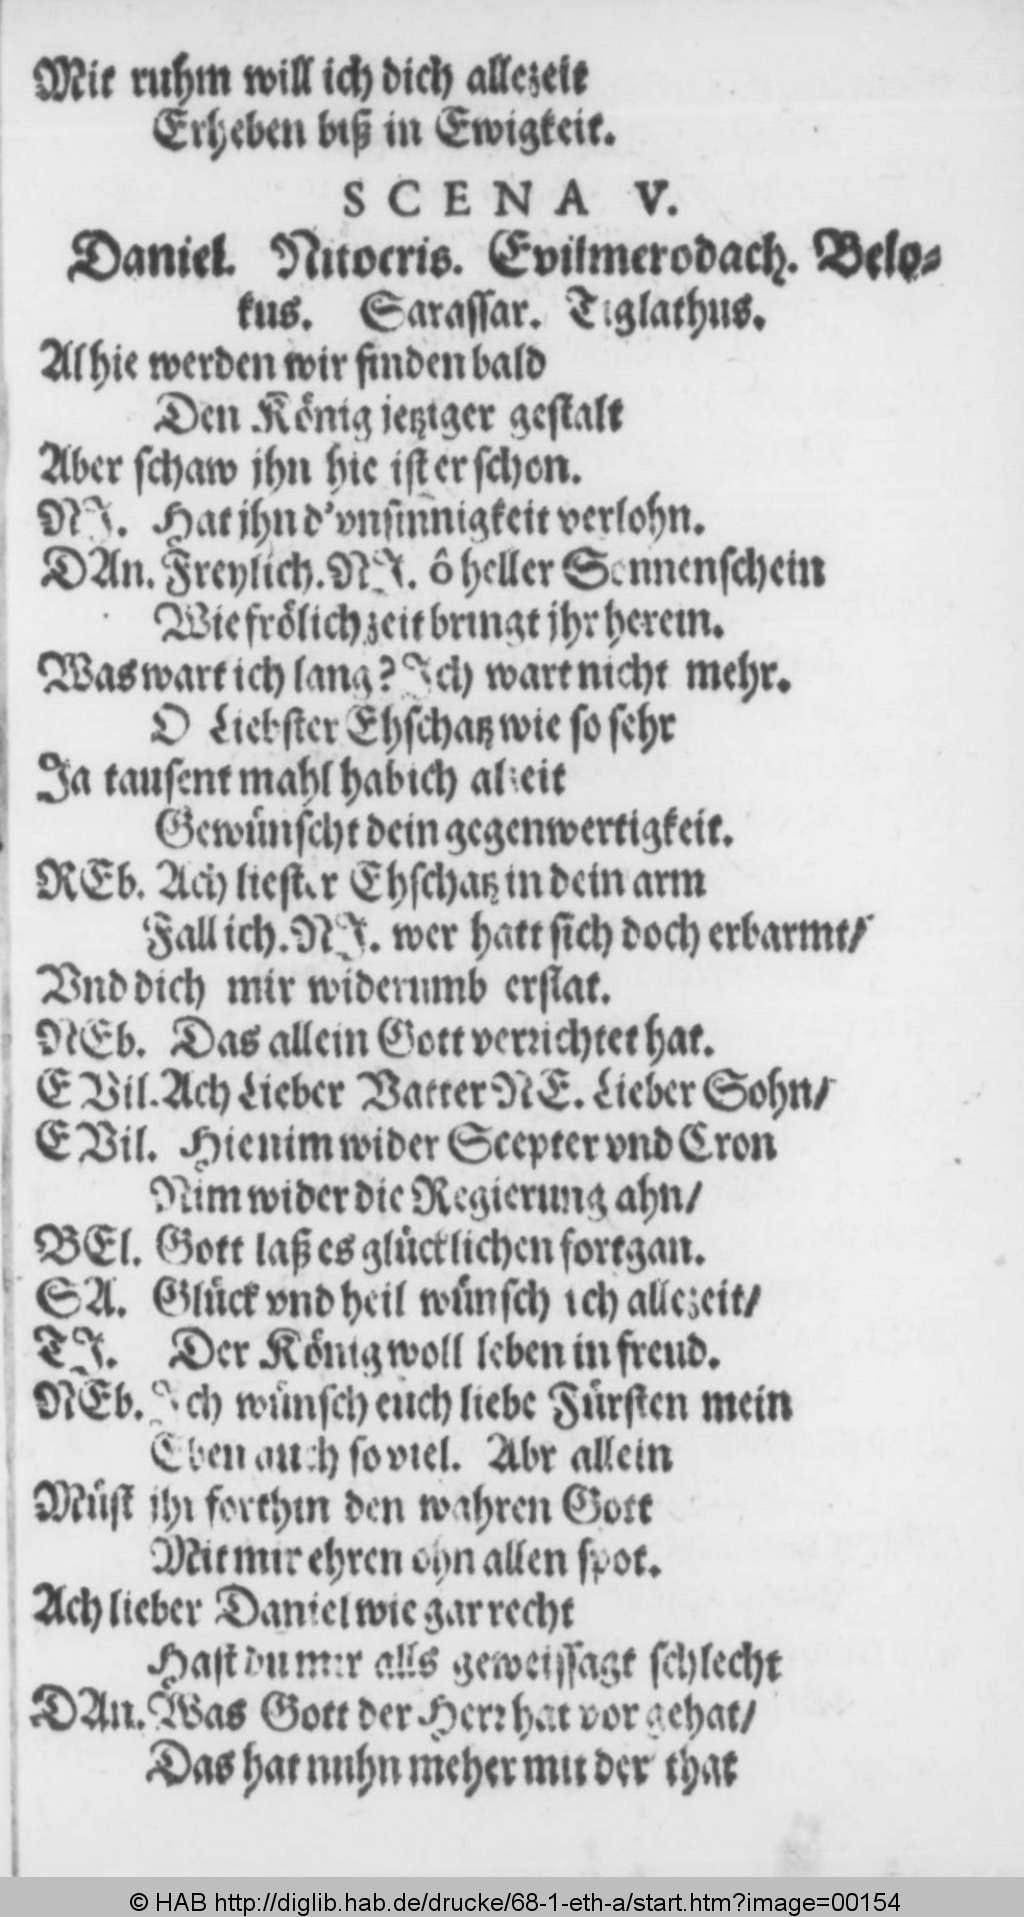 Mit ruhm will ich dich allezeit
Erheben biß in Ewigkeit.
SCENA V.
Daniel. Nitocris. Evilmerodach. Belo-
kus. Sarassar. Tiglathus.
Alhie werden wir finden bald
Den König jetziger gestalt
Aber schaw jhn hie ist er schon.
NJ. Hat jhn d'vnsinnigkeit verlohn.
DAn. Freylich. NJ. ô heller Sonnenschein
Wie frölich zeit bringt jhr herein.
Was wart ich lang? Ich wart nicht mehr.
O Liebster Ehschatz wie so sehr
Ja tausent mahl hab ich alzeit
Gewünscht dein gegenwertigkeit.
REb. Ach liester Ehschatz in dein arm
Fall ich. NJ. wer hatt sich doch erbarmt/
Vnd dich mir widerumb erstat.
NEb. Das allein Gott verrichtet hat.
EVil. Ach Lieber Vatter NE. Lieber Sohn/
EVil. Hie nim wider Scepter vnd Cron
Nim wider die Regierung ahn/
BEl. Gott laß es glücklichen fortgan.
SA. Glück vnd heil wünsch ich allezeit/
TJ. Der König woll leben in freud.
NEb. Ich wünsch euch liebe Fürsten mein
Eben auch so viel. Abr allein
Müst jhr forthin den wahren Gott
Mit mir ehren ohn allen spot.
Ach lieber Daniel wie gar recht
Hast du mir alls geweissagt schlecht
DAn. Was Gott der Herr hat vor gehat/
Das hat nuhn meher mit der that
© HAB http://diglib.hab.de/drucke/68-1-eth-a/start.htm?image=00154